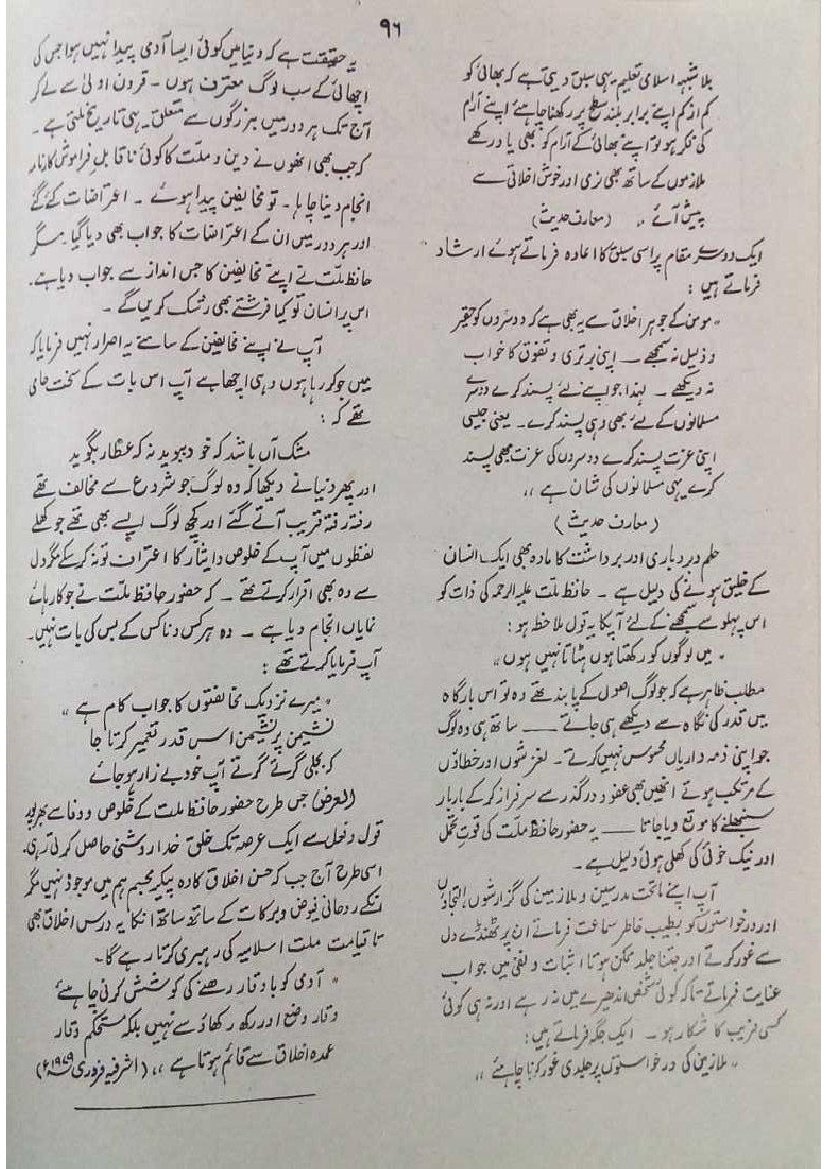 ۹۶
بلاشبہ اسلامی تعلیم یہی سبق دیتی ہے کہ بھائی کو
کم از کم اپنے برابر بلند سطح پر رکھنا چاہئے اپنے آرام
کی فکر ہو تو اپنے بھائی کے آرام کو بھی یاد رکھے
ملازموں کے ساتھ بھی نرمی اور خوش اخلاقی سے
پیش آئے ،، (معارف حدیث)
ایک دوسرے مقام پر اسی سبق کا اعادہ فرماتے ہوئے ارشاد
فرماتے ہیں :
" مومن کے جوہر اخلاق سے یہ بھی ہے کہ دوسروں کو حقیر
و ذلیل نہ سمجھے ــ اپنی برتری و تفوق کا خواب
نہ دیکھے ۔ لہٰذا جو اپنے لئے پسند کرے دوسرے
مسلمانوں کے لئے بھی وہی پسند کرے ۔ یعنی جیسی
اپنی عزت پسند کرے دوسروں کی عزت بھی پسند
کرے یہی مسلمانوں کی شان ہے ،،
(معارف حدیث)
حلم و بردباری اور برداشت کا مادہ بھی ایک انسان
کے خلیق ہونے کی دلیل ہے ۔ حافظ ملت علیہ الرحمہ کی ذات کو
اس پہلو سے سمجھنے کے لئے آپکا یہ قول ملاحظہ ہو :
" میں لوگوں کو رکھتا ہوں ہٹاتا نہیں ہوں "
مطلب ظاہر ہے کہ جو لوگ اصول کے پابند تھے وہ تو اس بارگاہ
میں قدر کی نگاہ سے دیکھے ہی جاتے ــــ ساتھ ہی وہ لوگ
جو اپنی ذمہ داریاں محسوس نہیں کرتے ۔ لغزشوں اور خطاؤں
کے مرتکب ہوتے انھیں بھی عفو و درگذر سے سرفراز کرکے بار بار
سنبھلنے کا موقع دیا جاتا ــــ یہ حضور حافظ ملت کی قوت تحمل
اور نیک خوئی کی کھلی ہوئی دلیل ہے ۔
آپ اپنے ماتحت مدرسین و ملازمین کی گزارشوں التجاؤں
اور درخواستوں کو بطیب خاطر سماعت فرماتے ان پر ٹھنڈے دل
سے غور کرتے اور جتنا جلد ممکن ہوتا اثبات و نفی میں جواب
عنایت فرماتے تاکہ کوئی شخص اندھیرے میں نہ رہے اور نہ ہی کوئی
کسی فریب کا شکار ہو ۔ ایک جگہ فرماتے ہیں :
" ملازمین کی درخواستوں پر جلدی غور کرنا چاہئے ،،
یہ حقیقت ہے کہ دنیا میں کوئی ایسا آدمی پیدا نہیں ہوا جس کی
اچھائی کے سب لوگ معترف ہوں ۔ قرون اولیٰ سے لے کر
آج تک ہر دور میں بزرگوں سے متعلق یہی تاریخ ملتی ہے ۔
کہ جب بھی انھوں نے دین و ملت کا کوئی ناقابل فراموش کارنامہ
انجام دینا چاہا ۔ تو مخالفین پیدا ہوئے ۔ اعتراضات کئے گئے
اور ہر دور میں ان کے اعتراضات کا جواب بھی دیا گیا مگر
حافظ ملت نے اپنے مخالفین کا جس انداز سے جواب دیا ہے ۔
اس پر انسان تو کیا فرشتے بھی رشک کریں گے ۔
آپ نے اپنے مخالفین کے سامنے یہ اصرار نہیں فرمایا کہ
میں جو کر رہا ہوں وہی اچھا ہے آپ اس بات کے سخت حامی
تھے کہ :
مشک آں باشد کہ خود ببوید نہ کہ عطار بگوید
اور پھر دنیا نے دیکھا کہ وہ لوگ جو شروع سے مخالف تھے
رفتہ رفتہ قریب آتے گئے اور کچھ لوگ ایسے بھی تھے جو کھلے
لفظوں میں آپ کے خلوص و ایثار کا اعتراف تو نہ کرسکے مگر دل
سے وہ بھی اقرار کرتے تھے ۔ کہ حضور حافظ ملت نے جو کارہائے
نمایاں انجام دیا ہے ۔ وہ ہر کس و ناکس کے بس کی بات نہیں ۔
آپ فرمایا کرتے تھے :
" میرے نزدیک مخالفتوں کا جواب کام ہے "
نشیمن پر نشیمن اس قدر تعمیر کرتا جا
کہ بجلی گرتے گرتے آپ خود بے زار ہو جائے
الغرض جس طرح حضور حافظ ملت کے خلوص و وفا سے بھرپور
قول و فعل سے ایک عرصہ تک خلق خدا روشنی حاصل کرتی رہی ۔
اسی طرح آج جب کہ حسن اخلاق کا وہ پیکر مجسم ہم میں موجود نہیں مگر
انکے روحانی فیوض و برکات کے ساتھ ساتھ انکا یہ درس اخلاق بھی
تا قیامت ملت اسلامیہ کی رہبری کرتا رہے گا ۔
" آدمی کو باوقار رہنے کی کوشش کرنی چاہئے
وقار وضع اور رکھ رکھاؤ سے نہیں بلکہ مستحکم وقار
عمدہ اخلاق سے قائم ہوتا ہے ،، (اشرفیہ فروری ۱۹۷۹ء)